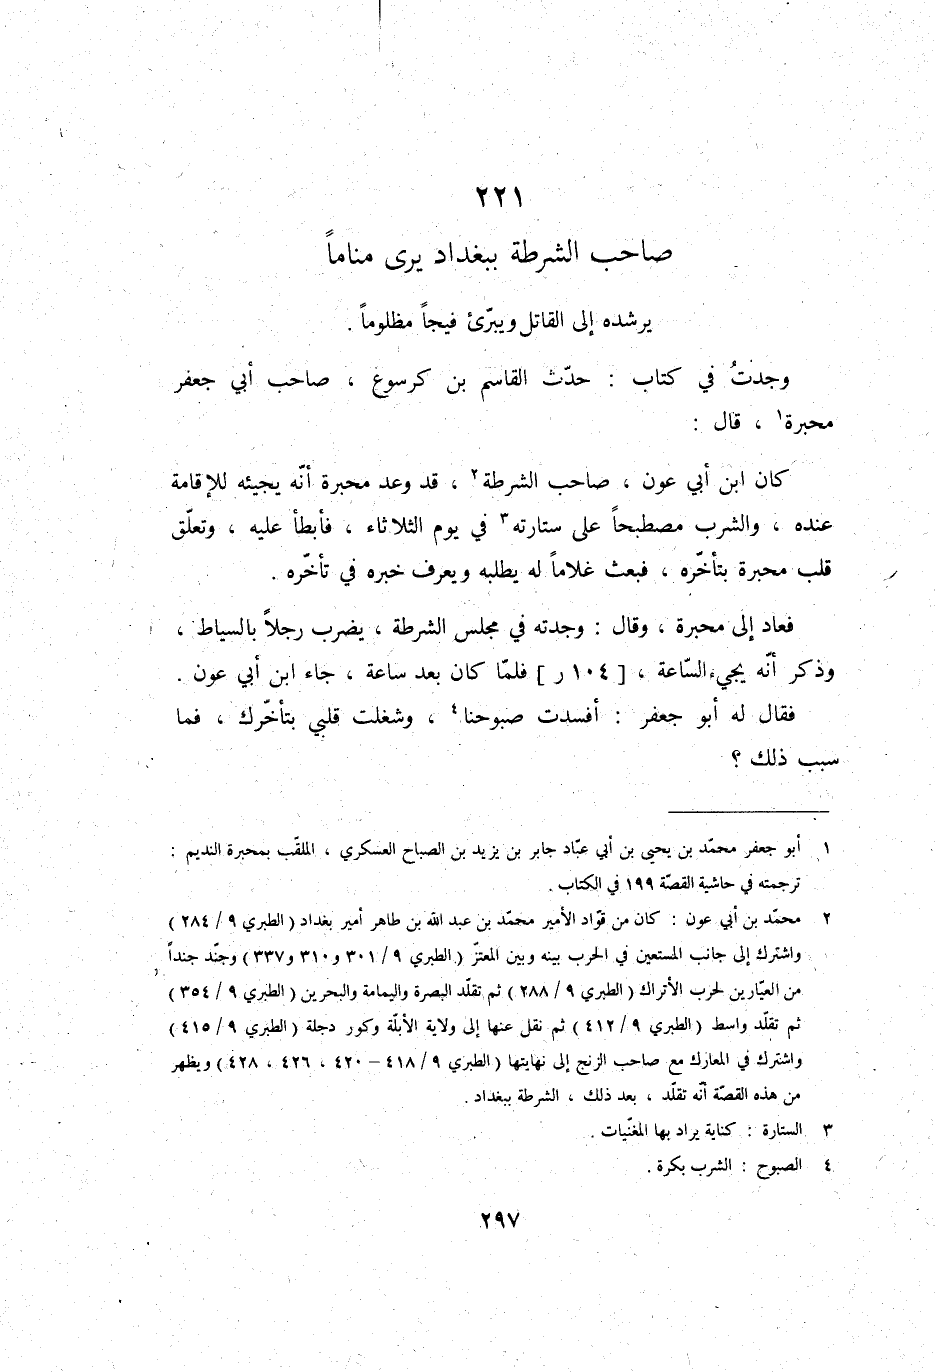 ٢٢١
صاحب الشرطة ببغداد يرى مناماً
يرشده إلى القاتل ويبرّئ فيجاً مظلوماً .
وجدتُ في كتاب : حدّث القاسم بن كرسوع ، صاحب أبي جعفر
محبرة١ ، قال :
كان ابن أبي عون ، صاحب الشرطة٢ ، قد وعد محبرة أنّه يجيئه للإقامة
عنده ، والشرب مصطبحاً على ستارته٣ في يوم الثلاثاء ، فأبطأ عليه ، وتعلّق
قلب محبرة بتأخّره ، فبعث غلاماً له يطلبه ويعرف خبره في تأخّره .
فعاد إلى محبرة ، وقال : وجدته في مجلس الشرطة ، يضرب رجلاً بالسياط ،
وذكر أنّه يجيء السّاعة ، [ ١٠٤ ر ] فلمّا كان بعد ساعة ، جاء ابن أبي عون .
فقال له أبو جعفر : أفسدت صبوحنا٤ ، وشغلت قلبي بتأخّرك ، فما
سبب ذلك ؟
١ أبو جعفر محمّد بن يحيى بن أبي عبّاد جابر بن يزيد بن الصباح العسكري ، الملقّب بمحبرة النديم :
ترجمته في حاشية القصّة ١٩٩ في الكتاب .
٢ محمّد بن أبي عون : كان من قوّاد الأمير محمّد بن عبد الله بن طاهر أمير بغداد ( الطبري ٩ / ٢٨٤ )
واشترك إلى جانب المستعين في الحرب بينه وبين المعتزّ ( الطبري ٩ / ٣٠١ و٣١٠ و٣٣٧ ) وجنّد جنداً
من العيّارين لحرب الأتراك ( الطبري ٩ / ٢٨٨ ) ثم تقلّد البصرة واليمامة والبحرين ( الطبري ٩ / ٣٥٤ )
ثم تقلّد واسط ( الطبري ٩ / ٤١٢ ) ثم نقل عنها إلى ولاية الأبلّة وكور دجلة ( الطبري ٩ / ٤١٥ )
واشترك في المعارك مع صاحب الزنج إلى نهايتها ( الطبري ٩ / ٤١٨ – ٤٢٠ ، ٤٢٦ ، ٤٢٨ ) ويظهر
من هذه القصّة أنّه تقلّد ، بعد ذلك ، الشرطة ببغداد .
٣ الستارة : كناية يراد بها المغنّيات .
٤ الصبوح : الشرب بكرة .
٢٩٧